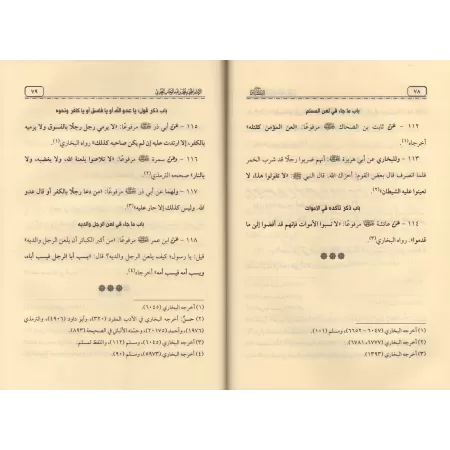 ٧٨
باب ما جاء في لعن المسلم
١١٢ - عن ثابت بن الضحاك ﷺ مرفوعًا: «لعن المؤمن كقتله»
أخرجاه(١).
١١٣ - وللبخاري عن أبي هريرة ﷺ: أنهم ضربوا رجلًا قد شرب الخمر
فلما انصرف قال بعض القوم: أخزاك الله، قال النبي ﷺ: «لا تقولوا هذا، لا
تعينوا عليه الشيطان»(٢).
باب ذكر تأكده في الأموات
١١٤ - عن عائشة ﷺ مرفوعًا: «لا تسبوا الأموات فإنهم قد أفضوا إلى ما
قدموا». رواه البخاري(٣).
(١) أخرجه البخاري (٦٠٤٧-٦٦٥٢)، ومسلم (١٠١).
(٢) أخرجه البخاري (٦٧٧٧، ٦٧٨١).
(٣) أخرجه البخاري (١٣٩٣).
٧٩
باب ذكر قول: يا عدو الله أو يا فاسق أو يا كافر ونحوه
١١٥ - عن أبي ذر ﷺ مرفوعًا: «لا يرمي رجل رجلًا بالفسوق ولا يرميه
بالكفر، إلا ارتدت عليه إن لم يكن صاحبه كذلك» رواه البخاري(١).
١١٦ - وعن سمرة ﷺ مرفوعًا: «لا تلاعنوا بلعنة الله، ولا بغضبه، ولا
بالنار» صححه الترمذي(٢).
١١٧ - ولهما عن أبي ذر ﷺ مرفوعًا: «من دعا رجلًا بالكفر أو قال عدو
الله. وليس كذلك إلا حار عليه»(٣).
باب ما جاء في لعن الرجل والديه
١١٨ - عن ابن عمر ﷺ مرفوعًا: «من أكبر الكبائر أن يلعن الرجل والديه»
قيل: يا رسول الله كيف يلعن الرجل والديه؟ قال: «يسب أبا الرجل فيسب أباه،
ويسب أمه فيسب أمه» أخرجاه(٤).
(١) أخرجه البخاري (٦٠٤٥).
(٢) حسن: أخرجه البخاري في الأدب المفرد (٣٢٠)، وأبو داود (٤٩٠٦)، والترمذي
(١٩٧٦)، وأحمد (٢٠١٧٥)، وحسنه الألباني في الصحيحة (٨٩٣).
(٣) أخرجه البخاري (٦٠٤٥)، ومسلم (١١٢)، واللفظ لمسلم.
(٤) أخرجه البخاري (٥٩٧٣)، ومسلم (٩٠).